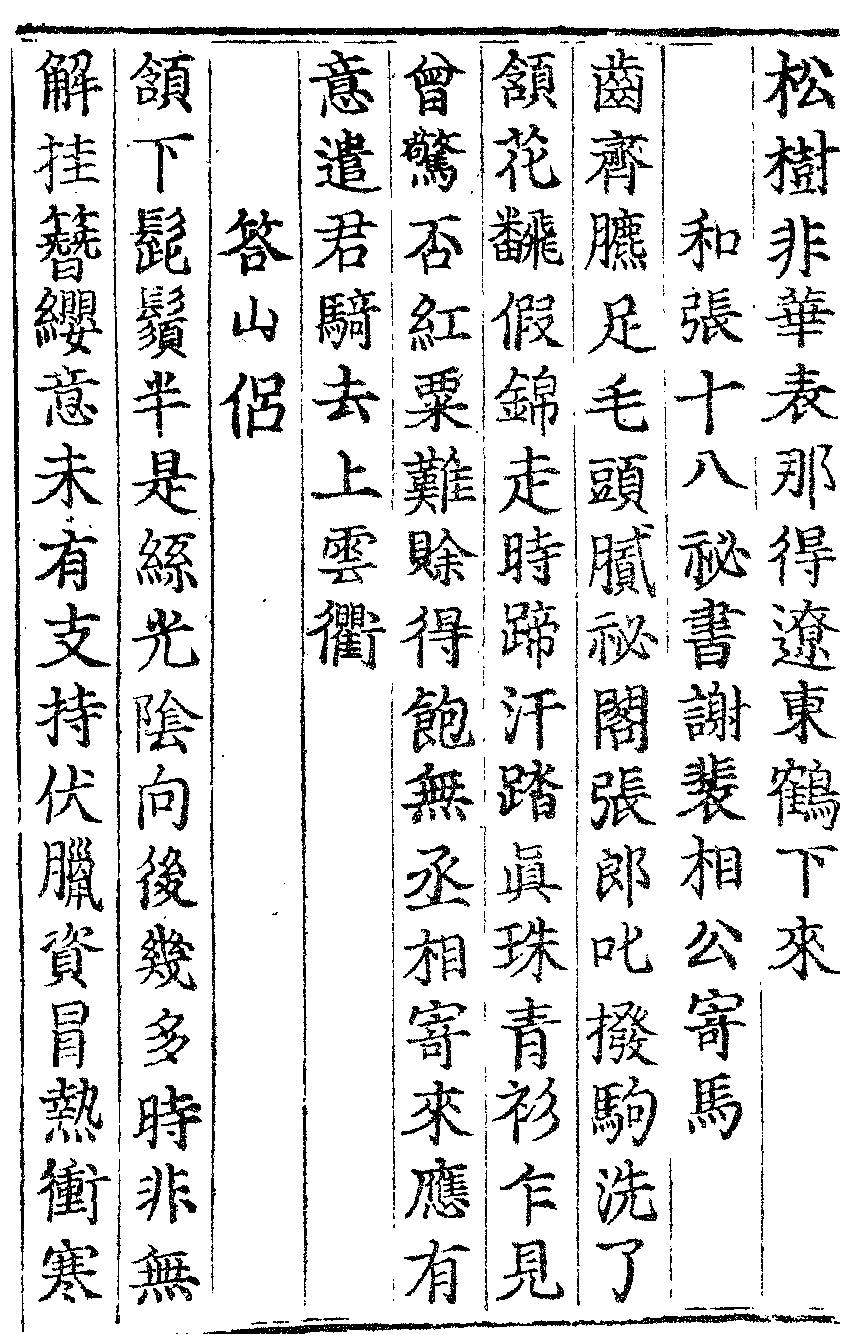 松樹非華表那得遼東鶴下來
和張十八祕書謝裴相公寄馬
齒齊臕足毛頭膩祕閣張郎叱撥駒洗了
頷花飜假錦走時蹄汗踏眞珠青衫乍見
曾驚否紅粟難賒得飽無丞相寄來應有
意遣君騎去上雲衢
答山侶
頷下髭鬚半是絲光陰向後幾多時非無
解挂簪纓意未有支持伏臘資冒熱衝寒